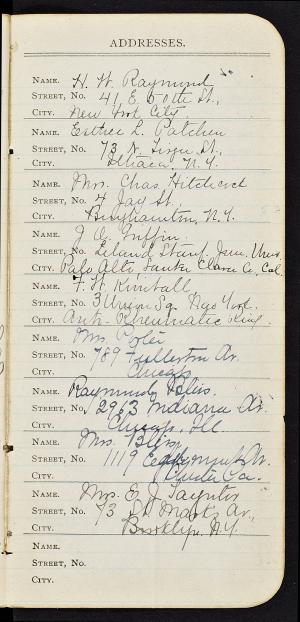 ADDRESSES.
NAME. H. W. Raymond
STREET, NO. 41 E. 50th St.,
CITY. New York City.
NAME. Esther L. Patchen
STREET, NO. 73 N. St.,
CITY. Ithaca, N.Y.
NAME. Mrs. Chas. Hitchcock
STREET, NO. 4 Jay St.,
CITY. Binghamton, N.Y.
NAME. J. O. Griffin
STREET, NO. Leland Stan. Jun. Univ.
CITY. Palo Alto, Santa Clara Co., Cal.
NAME. F. W. Kimball
STREET, NO. 3 Union Sq. New York.
CITY. Anti-Rheumatic Ring
NAME. Mrs.
STREET, NO. 789 Fullerton Av.
CITY. Chicago
NAME. Raymond Bliss.
STREET, NO. 2973 Indiana Av.
CITY. Chicago, Ill.
NAME. Mrs. Bliss,
STREET, NO. 1119 Av.
CITY. Chester Pa.
NAME. Mrs. E. J.
STREET, NO. 73 St. Marks Av.,
CITY. Brooklyn, N.Y.
NAME.
STREET, NO.
CITY.